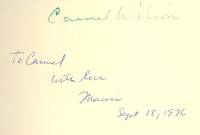 Carmel Wilson
To Carmel
with love
Sept 18, 1976